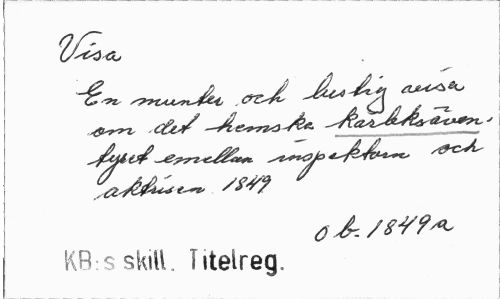 Visa
En munter och lustig avisa
om det hemska kärleksäven-
tyret emellan inspektorn och
aktrisen 1849
Ob. 1849a
KB:s skill. Titelreg.